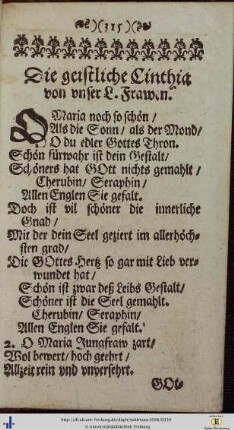 )(115)(
Die geistliche Cinthia
von vnser L. Frawen.
O Maria noch so schön /
Als die Sonn / als der Mond /
O du edler Gottes Thron.
Schön fürwahr ist dein Gestalt /
Schöners hat GOtt nichts gemahlt /
Cherubin / Seraphin /
Allen Englen Sie gefalt.
Doch ist vil schöner die innerliche
Gnad /
Mit der dein Seel geziert im allerhöch-
sten grad /
Die GOttes Hertz so gar mit Lieb ver-
wundet hat /
Schön ist zwar deß Leibs Gestalt /
Schöner ist die Seel gemahlt.
Cherubin / Seraphin /
Allen Englen Sie gefalt.
2. O Maria Jungfraw zart /
Wol bewert / hoch geehrt /
Allzeit rein vnd vnversehrt.
GOt-
© Universitätsbibliothek Freiburg